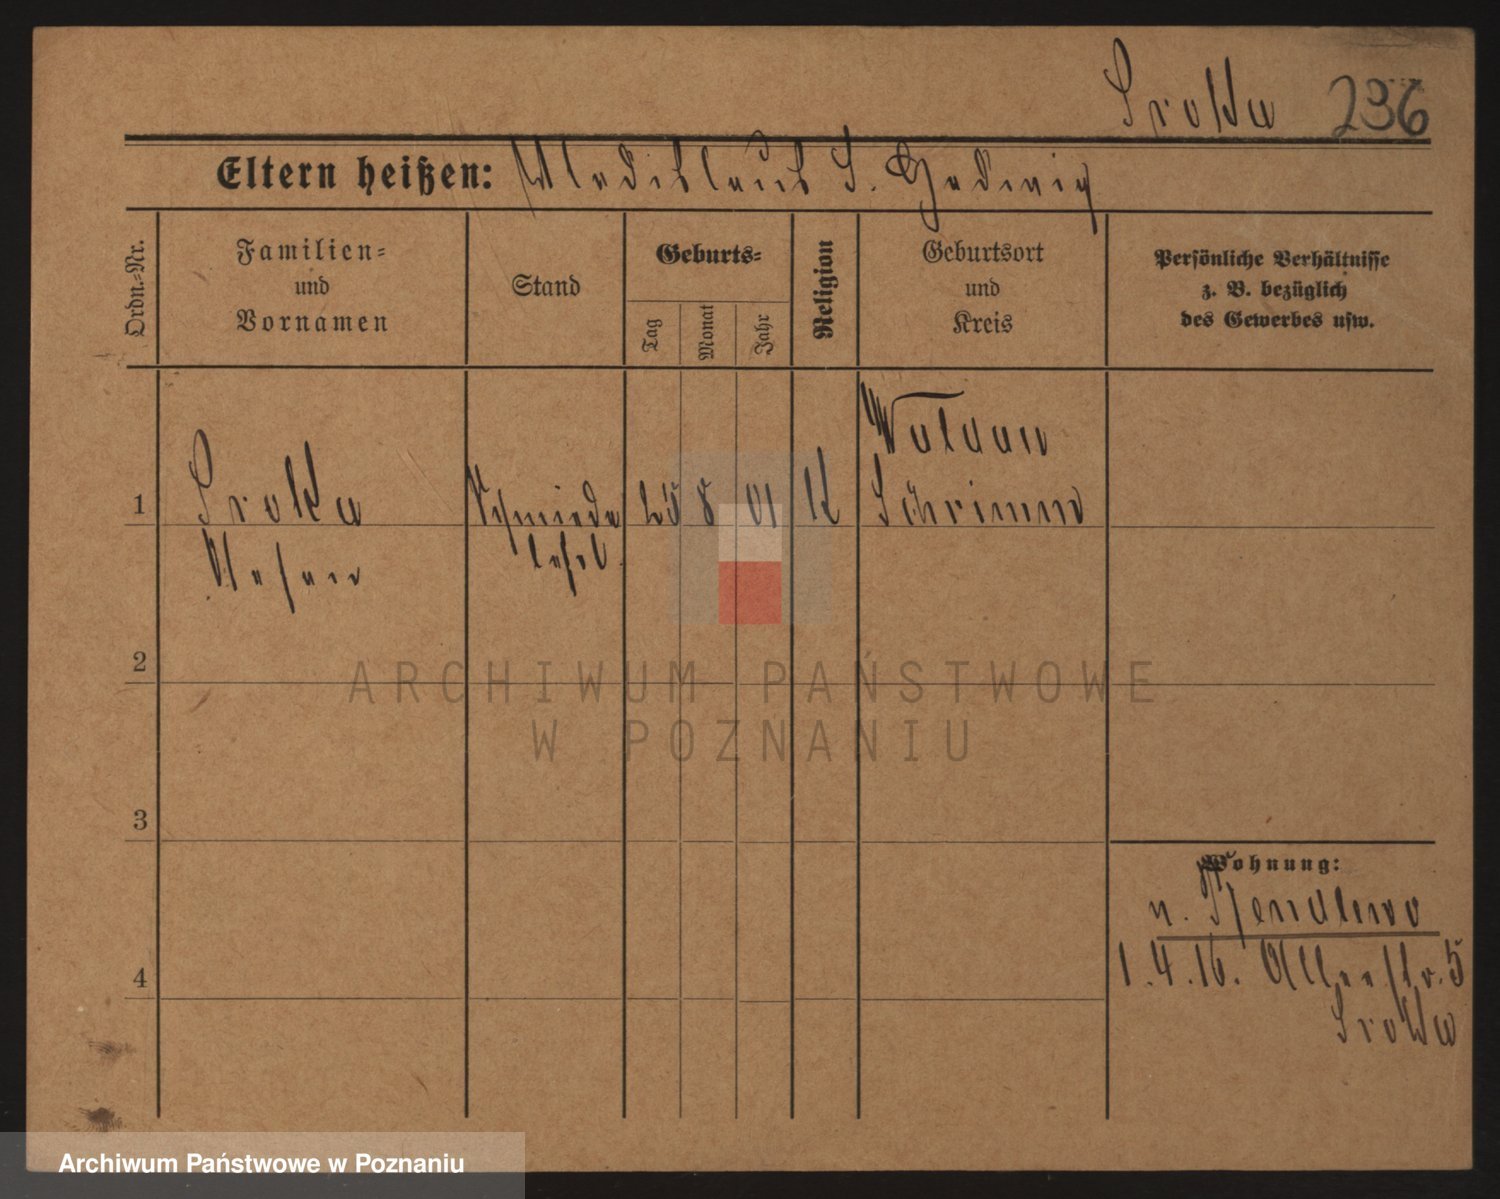 Sroka 236
Eltern heißen: Wladislaus S. Hedwig
Ordn.-Nr.
Familien-
und
Vornamen
Stand
Geburts-
Tag
Monat
Jahr
Religion
Geburtsort
und
Kreis
Persönliche Verhältnisse
z. B. bezüglich
des Gewerbes usw.
1
Sroka
Schmiede
25 8 01 K
Schrimm
lehrl
2
3
4
Wohnung:
n.
1.4.16. Alleestr. 5
Sroka
ARCHIWUM PAŃSTWOWE
W POZNANIU
Archiwum Państwowe w Poznaniu